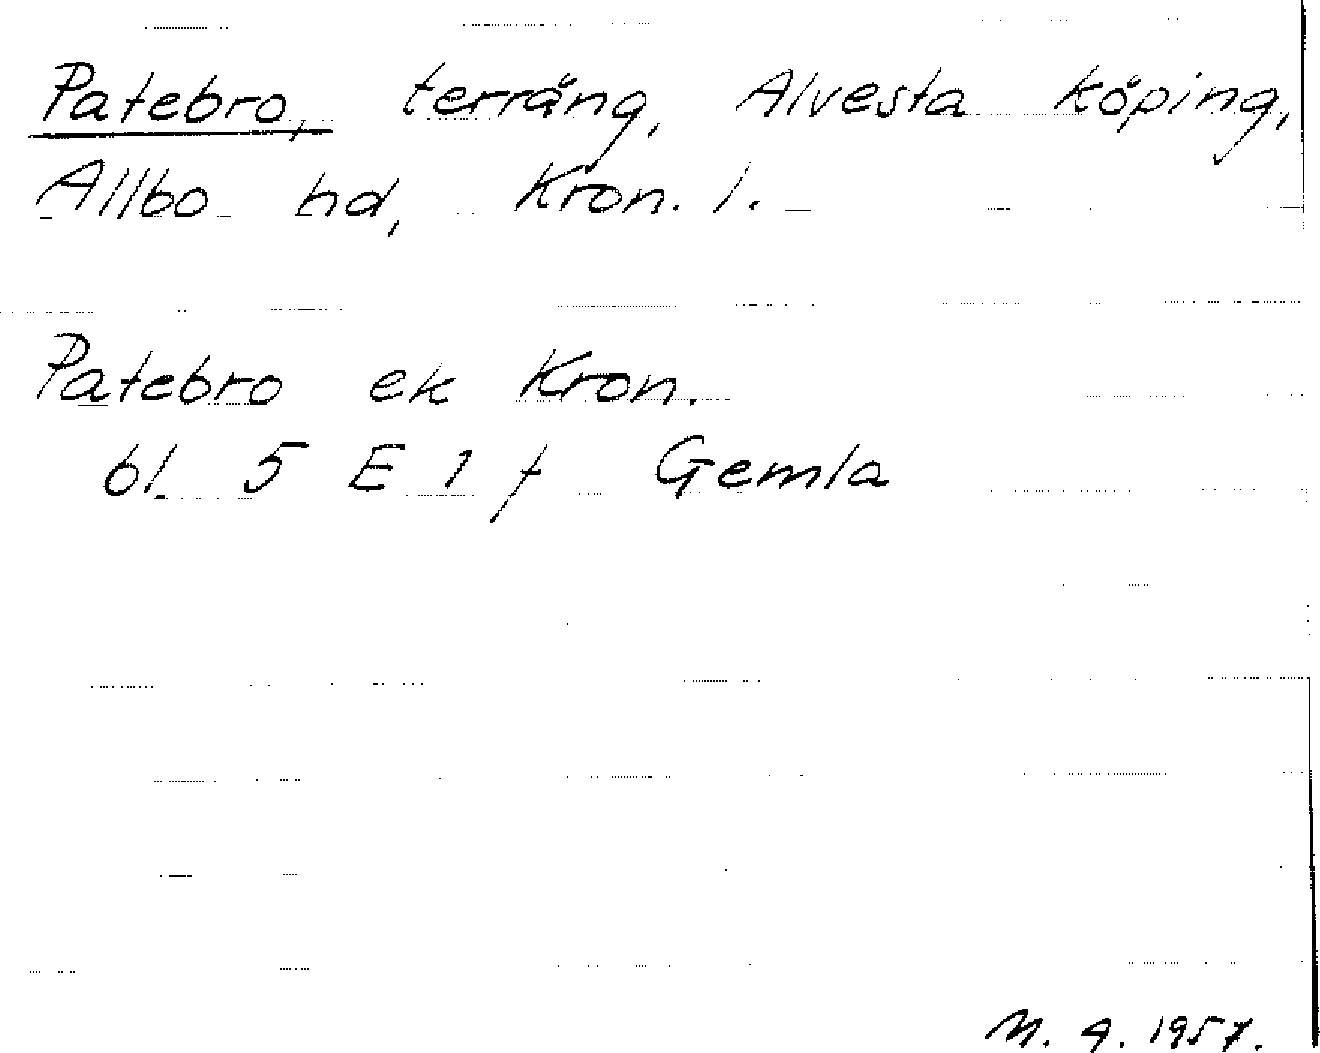 Patebro, terräng, Alvesta köping,
Allbo hd, Kron. l.
Patebro ek Kron.
bl. 5 E 1 f Gemla
M. A. 1957.